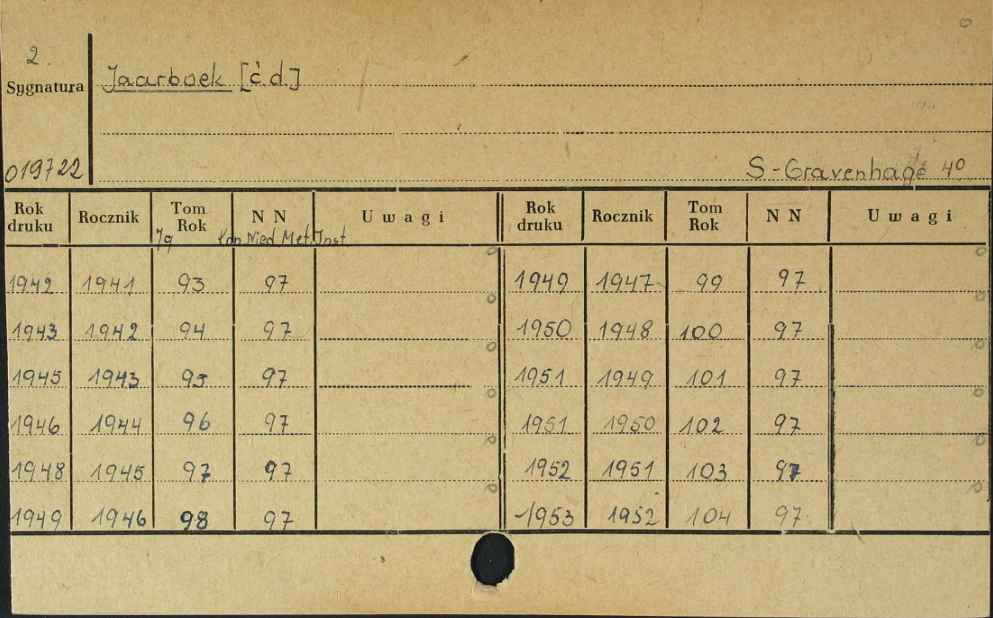 2.
Sygnatura
Jaarboek [c.d.]
019722
S-Gravenhage 4°
Rok druku Rocznik Tom Rok N N Uwagi Rok druku Rocznik Tom Rok N N Uwagi
Jg Kon Nied Met. Inst
1942 1941 93 97 1949 1947 99 97
1943 1942 94 97 1950 1948 100 97
1945 1943 95 97 1951 1949 101 97
1946 1944 96 97 1951 1950 102 97
1948 1945 97 97 1952 1951 103 97
1949 1946 98 97 1953 1952 104 97